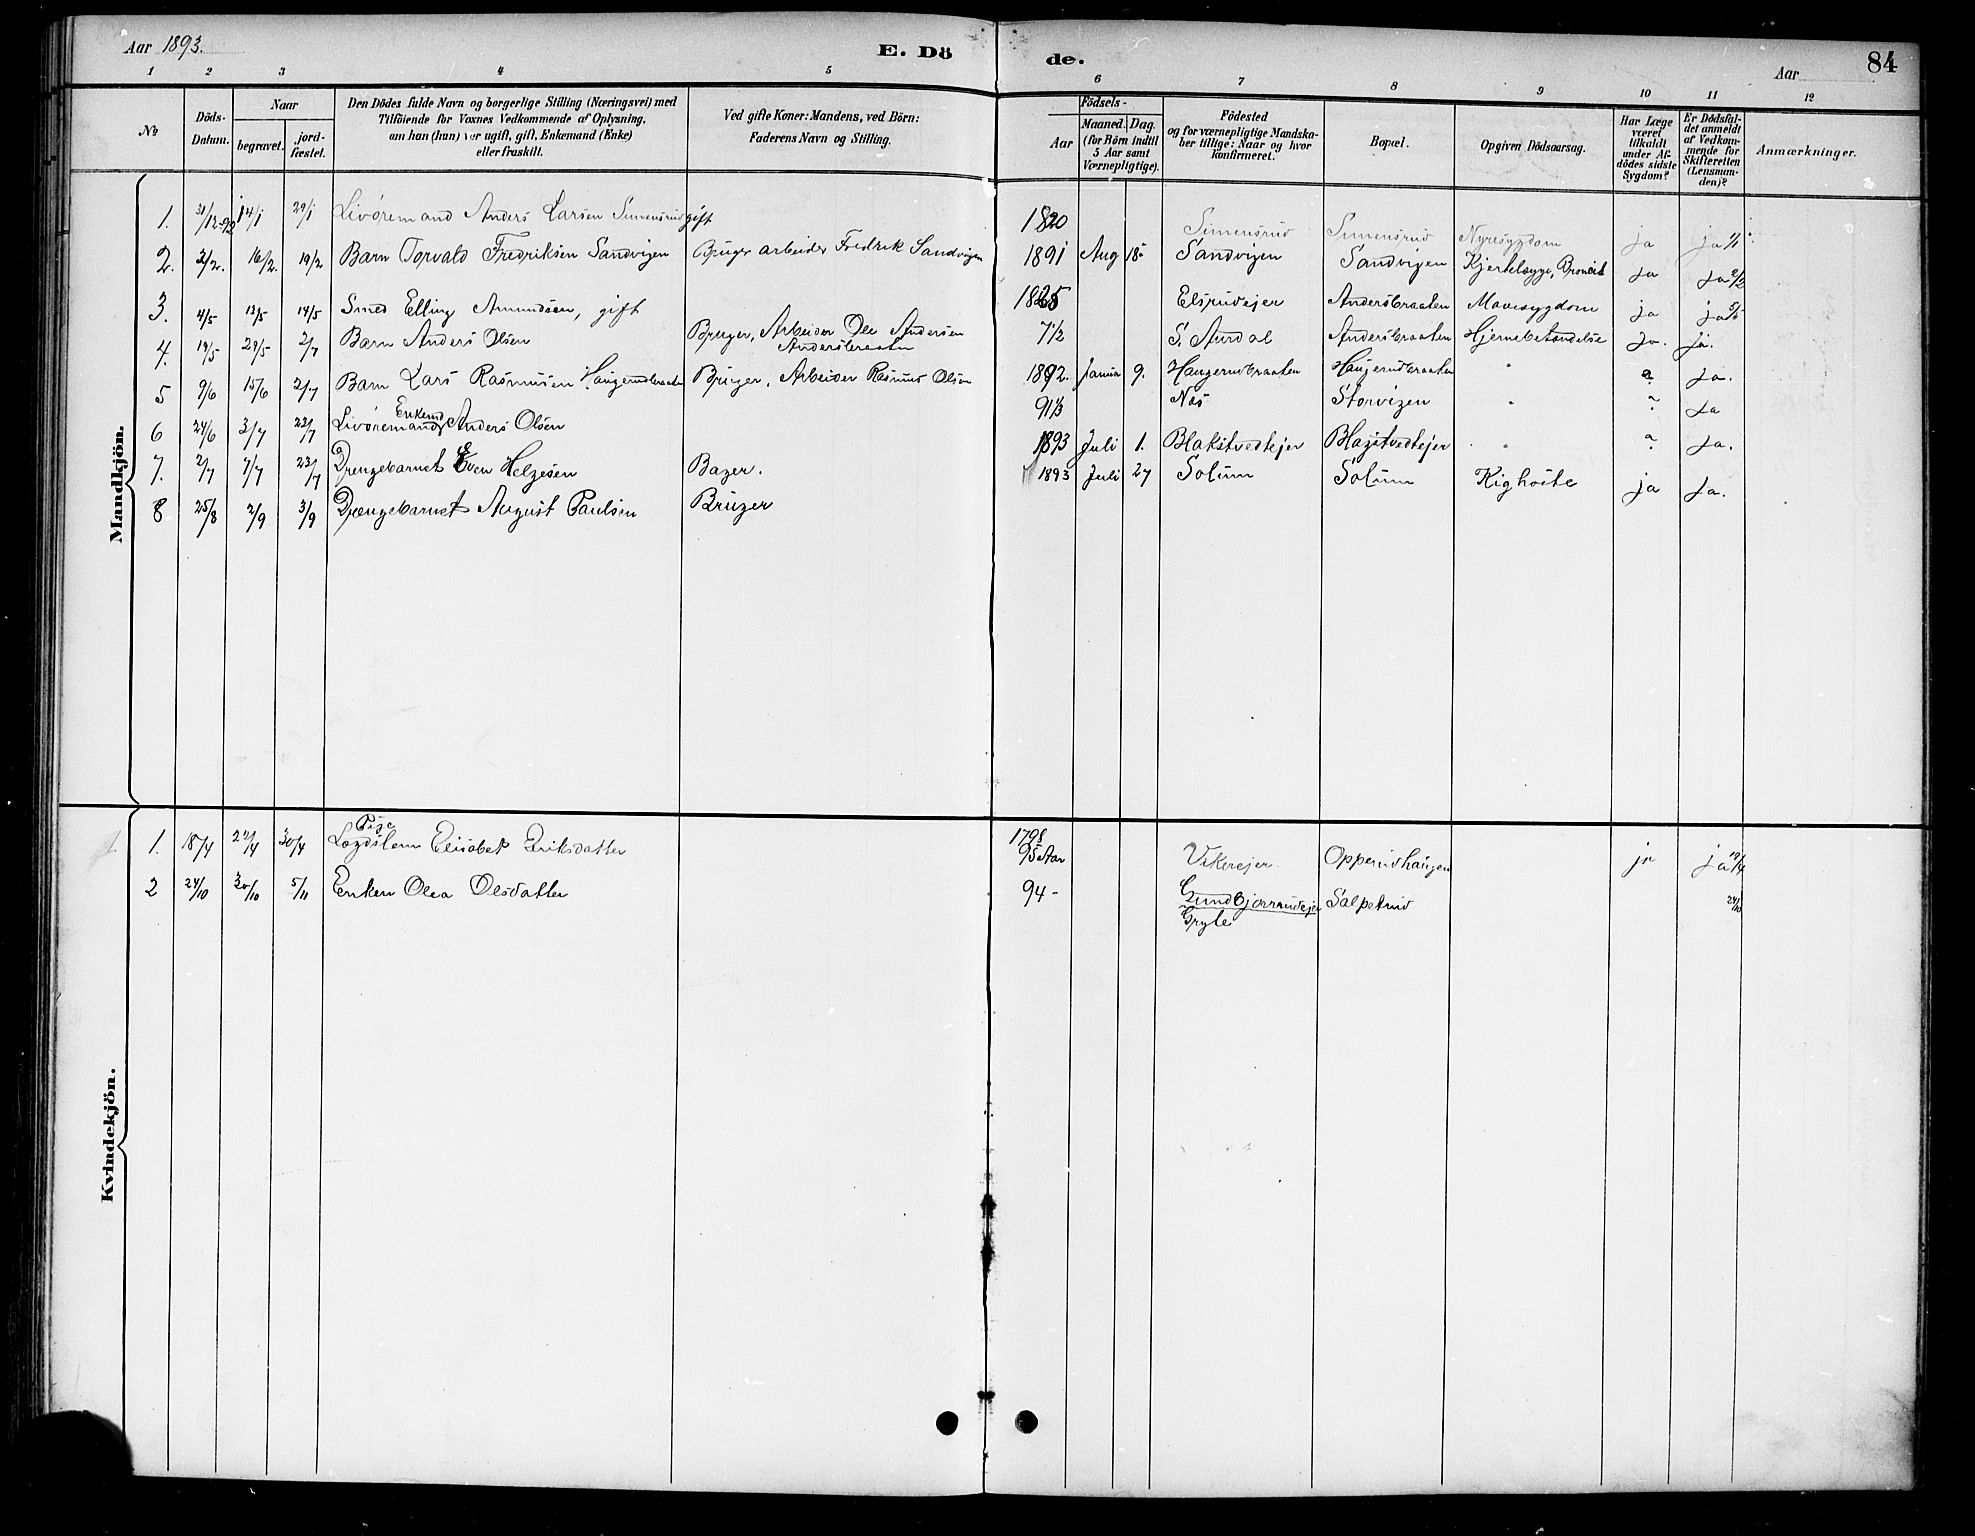 Aar 1893.
E. Dö
de.
Aar
84
1 2 3 4 5
6 7 8 9 10 11 12
No
Döds-Datum.
Naar
begravet.
jord-fæstet.
Den Dödes fulde Navn og borgerlige Stilling (Næringsvei) med
Tilföiende for Voxnes Vedkommende af Oplysning,
om han (hun) var ugift, gift, Enkemand (Enke)
eller fraskilt.
Ved gifte Koner: Mandens, ved Börn:
Faderens Navn og Stilling.
Födsels-
Aar
Maaned. Dag.
(for Börn indtil
5 Aar samt
Værnepligtige).
Födested
og for værnepligtige Mandska-
ber tillige: Naar og hvor
konfirmeret.
Bopæl.
Opgiven Dödsaarsag.
Har Læge
været
tilkaldt
under Af-
dödes sidste
Sygdom?
Er Dödsfal-
det anmeldt
af Vedkom-
mende for
Skifteretten
(Lensman-
den)?
Anmærkninger.
Mandkjön.
1. 31/12-92 14/1 29/1 Livöremand Anders Larsen Simensrud gift 1820 Simensrud Simensrud Nyresygdom ja ja
2. 2/2. 16/2. 19/2 Barn Torvald Fredriksen Sandvigen Bruger arbeider Fredrik Sandvigen 1891 Aug 18 Sandvigen Sandvigen Kjertelsyge, Broncit ja ja 2/2
3. 4/5 13/5 14/5 Smed Elling Amundsen, gift Elsrudejer Andersbraaten Mavesygdom ja ja 5/5
4. 19/5 29/5 2/7 Barn Anders Olsen Bruger, Arbeider Ole Andersen Andersbraaten 7 1/2 S. Aurdal Andersbraaten Hjernebetændelse ja. ja.
5 9/6 15/6 2/7 Barn Lars Rasmusen Haugerudbraaten Bruger, Arbeider Rasmus Olsen 1892. Januar 9. Haugerudbraaten Haugerudbraaten " ja.
6 24/6 3/7 23/7 Livöremand Enkemd Anders Olsen 91 1/3 Næs Storvigen " ja
7. 2/7 7/7 23/7 Drengebarnet Even Helgesen Bager. 1893 Juli 1. Blakstvedtejer Blagstvedtejer " ja.
8 25/8 2/9 3/9 Drengebarnet August Paulsen Bruger 1893 Juli 27 Solum Solum Kighoste ja ja.
Kvindekjön.
1. 18/4 24/4 30/4 Pige Lægdslem Elisabet Eriksdatter 1798 95 Aar Vikerejer. Opperudhaugen ja ja 19/4
2 24/10 30/10 5/11 Enken Olea Olsdatter 94 - Gundbjørrudejer Gryte Salpetrud 24/10